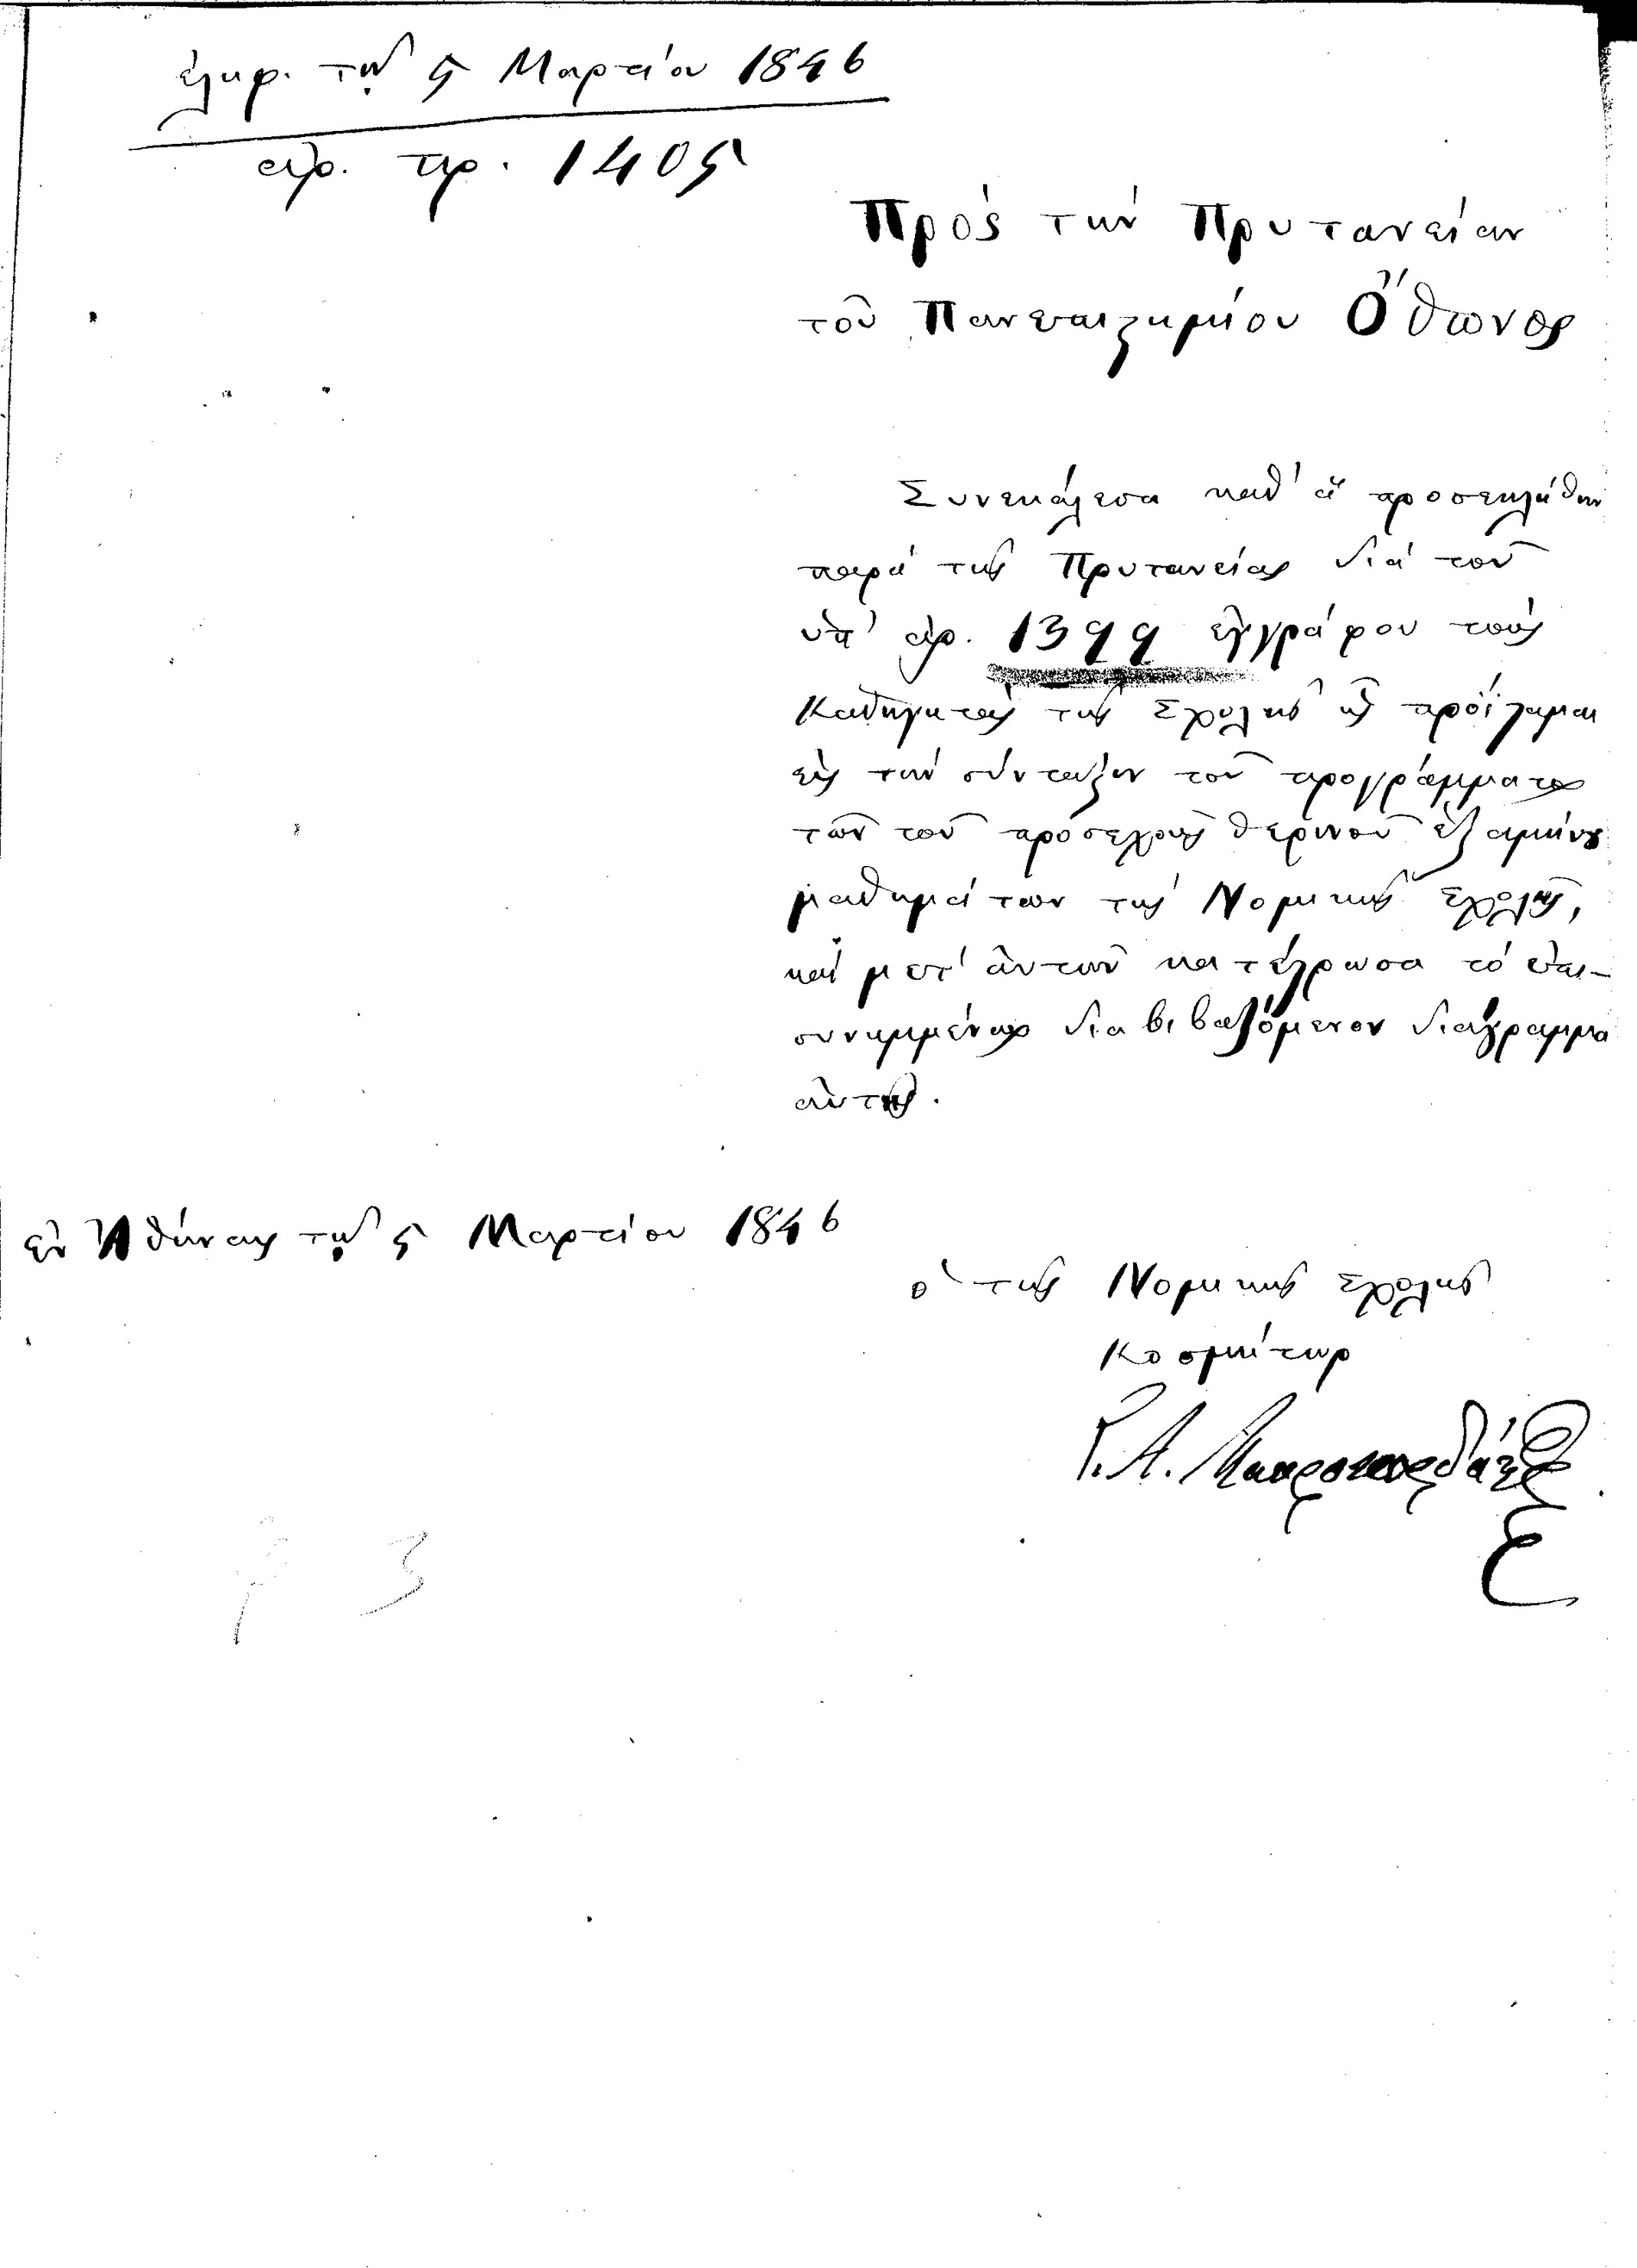 ἐλήφ. τῇ 5 Μαρτίου 1846
ἀρ. πρ. 1405
Πρὸς τὴν Πρυτανείαν
τοῦ Πανεπιστημίου Ὄθωνος
Συνεκάλεσα καθ' ἃ προσεκλήθην
παρὰ τῆς Πρυτανείας διὰ τοῦ
ὑπ' ἀρ. 1399 ἐγγράφου τοὺς
Καθηγητὰς τῆς Σχολῆς ἧς προΐσταμαι
εἰς τὴν σύνταξιν τοῦ προγράμματος
τῶν τοῦ προσεχοῦς θερινοῦ ἑξαμήνου
μαθημάτων τῆς Νομικῆς Σχολῆς,
καὶ μετ' αὐτῶν κατέστρωσα τὸ ἐπι-
συνημμένως διαβιβαζόμενον διάγραμμα
αὐτῆς.
ἐν Ἀθήναις τῇ 5 Μαρτίου 1846
ὁ τῆς Νομικῆς Σχολῆς
Κοσμήτωρ
Γ. Α. Μαυροκορδάτος
3